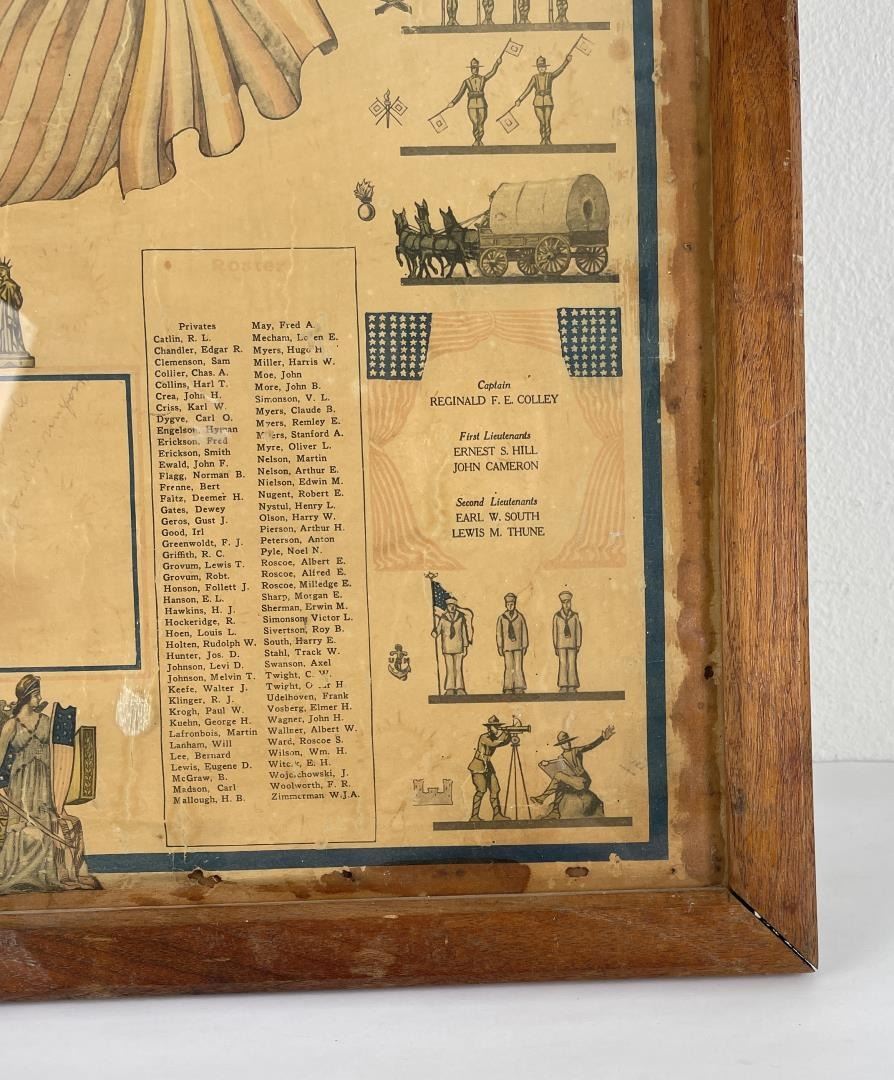 Roster
Privates
Catlin, R. L.
Chandler, Edgar R.
Clemenson, Sam
Collier, Chas. A.
Collins, Harl T.
Crea, John H.
Criss, Karl W.
Dygve, Carl O.
Engelson, Hyman
Erickson, Fred
Erickson, Smith
Ewald, John F.
Flagg, Norman B.
Frenne, Bert
Faltz, Deemer H.
Gates, Dewey
Geros, Gust J.
Good, Irl
Greenwoldt, F. J.
Griffith, R. C.
Grovum, Lewis T.
Grovum, Robt.
Honson, Follett J.
Hanson, E. L.
Hawkins, H. J.
Hockeridge, R.
Hoen, Louis L.
Holten, Rudolph W.
Hunter, Jos. D.
Johnson, Levi D.
Johnson, Melvin T.
Keefe, Walter J.
Klinger, R. J.
Krogh, Paul W.
Kuehn, George H.
Lafronbois, Martin
Lanham, Will
Lee, Bernard
Lewis, Eugene D.
McGraw, B.
Madson, Carl
Mallough, H. B.
May, Fred A.
Mecham, E.
Myers, Hugo H
Miller, Harris W.
Moe, John
More, John B.
Simonson, V. L.
Myers, Claude B.
Myers, Remley E.
Stanford A.
Myre, Oliver L.
Nelson, Martin
Nelson, Arthur E.
Nielson, Edwin M.
Nugent, Robert E.
Nystul, Henry L.
Olson, Harry W.
Pierson, Arthur H.
Peterson, Anton
Pyle, Noel N.
Roscoe, Albert E.
Roscoe, Alfred E.
Roscoe, Milledge E.
Sharp, Morgan E.
Sherman, Erwin M.
Simonson, Victor L.
Sivertson, Roy B.
South, Harry E.
Stahl, Track W.
Swanson, Axel
Twight, C. W.
Twight, H
Udelhoven, Frank
Vosberg, Elmer H.
Wagner, John H.
Wallner, Albert W.
Ward, Roscoe S.
Wilson, Wm. H.
E. H.
Wojechowski, J.
Woolworth, F. R.
Zimmerman W.J.A.
Captain
REGINALD F. E. COLLEY
First Lieutenants
ERNEST S. HILL
JOHN CAMERON
Second Lieutenants
EARL W. SOUTH
LEWIS M. THUNE